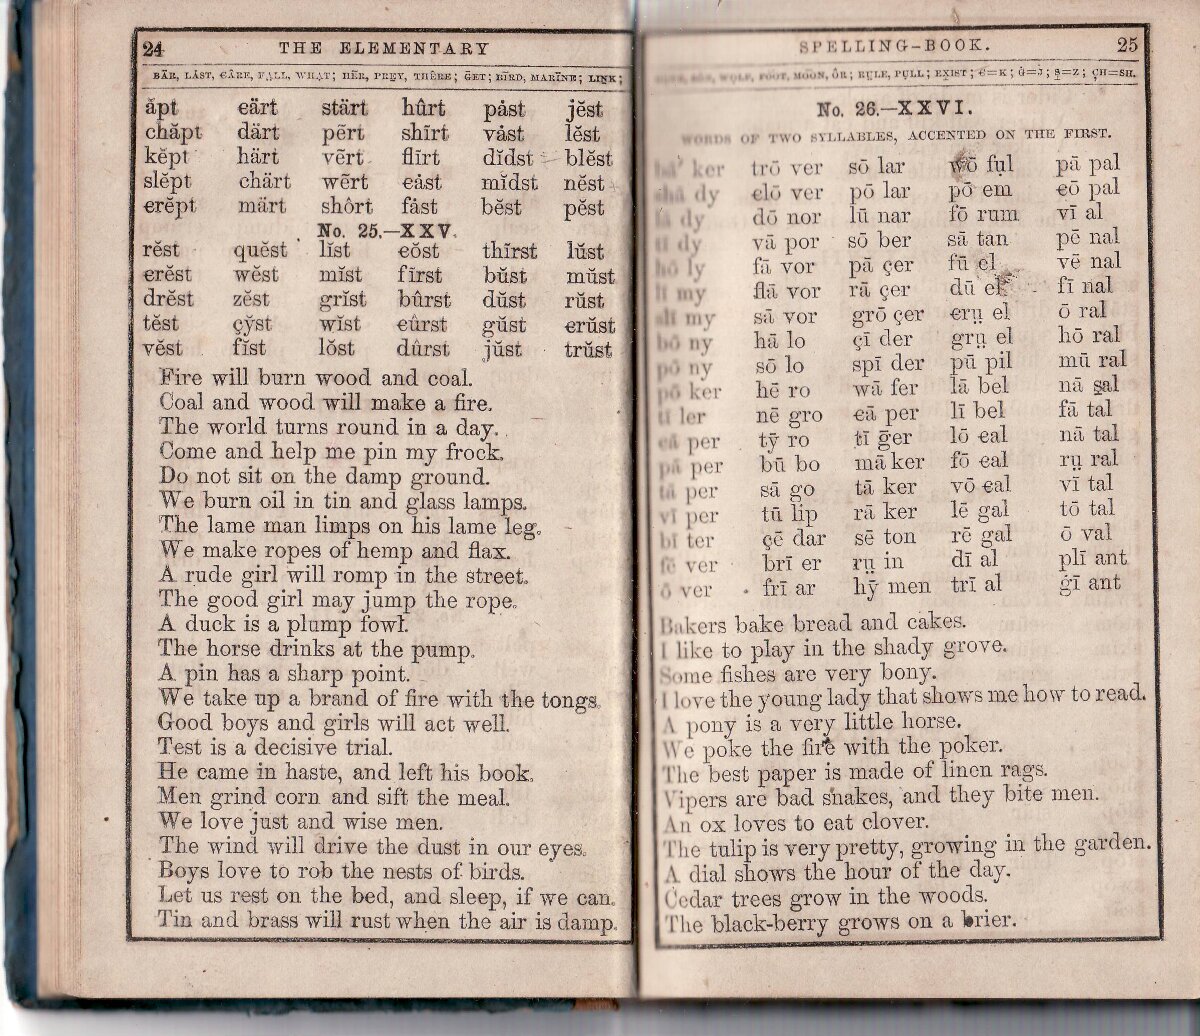 24 THE ELEMENTARY
BÄR, LȦST, ЄÂRE, FA̤LL, WHẠT; HẼR, PRE̱Y, THÊRE; ḠET; BĨRD, MARÏNE; LIṈK;
ăpt єärt stärt hûrt pȧst jĕst
chăpt därt pẽrt shĩrt vȧst lĕst
kĕpt härt vẽrt flĩrt dĭdst blĕst
slĕpt chärt wẽrt єȧst mĭdst nĕst
єrĕpt märt shôrt fȧst bĕst pĕst
No. 25.—XXV.
rĕst quĕst lĭst єŏst thĩrst lŭst
єrĕst wĕst mĭst fĩrst bŭst mŭst
drĕst zĕst grĭst bûrst dŭst rŭst
tĕst çy̆st wĭst єûrst gŭst єrŭst
vĕst fĭst lŏst dûrst jŭst trŭst
Fire will burn wood and coal.
Coal and wood will make a fire.
The world turns round in a day.
Come and help me pin my frock.
Do not sit on the damp ground.
We burn oil in tin and glass lamps.
The lame man limps on his lame leg.
We make ropes of hemp and flax.
A rude girl will romp in the street.
The good girl may jump the rope.
A duck is a plump fowl.
The horse drinks at the pump.
A pin has a sharp point.
We take up a brand of fire with the tongs.
Good boys and girls will act well.
Test is a decisive trial.
He came in haste, and left his book.
Men grind corn and sift the meal.
We love just and wise men.
The wind will drive the dust in our eyes.
Boys love to rob the nests of birds.
Let us rest on the bed, and sleep, if we can.
Tin and brass will rust when the air is damp.
SPELLING-BOOK. 25
WỌLF, FOOT, MOON, ÔR; RṲLE, PỤLL; EX̱IST; Є=K; Ġ=J; S̱=Z; ÇH=SH.
No. 26.—XXVI.
WORDS OF TWO SYLLABLES, ACCENTED ON THE FIRST.
bā' ker trō ver sō lar wō fụl pā pal
shā dy єlō ver pō lar pō em єō pal
lā dy dō nor lū nar fō rum vī al
tī dy vā por sō ber sā tan pē nal
hō ly fā vor pā çer fū el vē nal
lī my flā vor rā çer dū el fī nal
slī my sā vor grō çer єrṳ el ō ral
bō ny hā lo çī der grṳ el hō ral
pō ny sō lo spī der pū pil mū ral
pō ker hē ro wā fer lā bel nā s̱al
tī ler nē gro єā per lī bel fā tal
єā per tȳ ro tī ḡer lō єal nā tal
pā per bū bo mā ker fō єal rṳ ral
tā per sā go tā ker vō єal vī tal
vī per tū lip rā ker lē gal tō tal
bī ter çē dar sē ton rē gal ō val
fē ver brī er rṳ in dī al plī ant
ō ver frī ar hȳ men trī al ġī ant
Bakers bake bread and cakes.
I like to play in the shady grove.
Some fishes are very bony.
I love the young lady that shows me how to read.
A pony is a very little horse.
We poke the fire with the poker.
The best paper is made of linen rags.
Vipers are bad snakes, and they bite men.
An ox loves to eat clover.
The tulip is very pretty, growing in the garden.
A dial shows the hour of the day.
Cedar trees grow in the woods.
The black-berry grows on a brier.